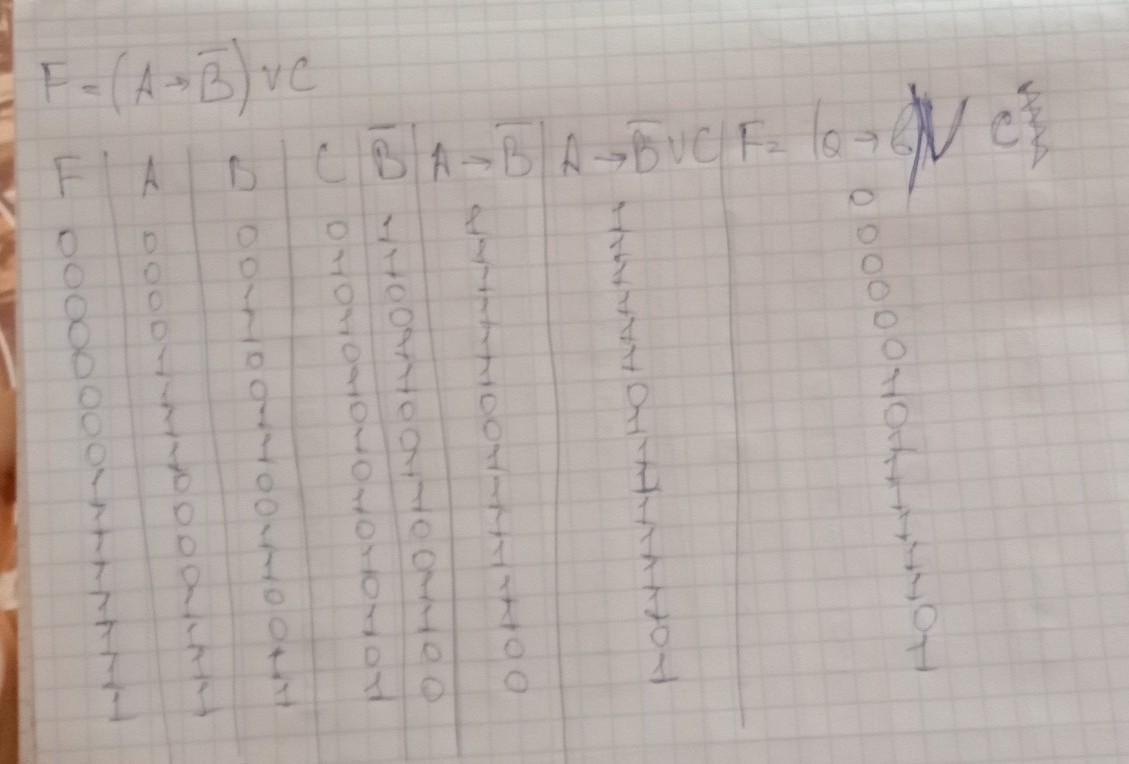 F=(A→B̅)vC
F A B C B̅ A→B̅ A→B̅vC F= (a→B)V C
0 0 0 0 1 1 1 0
0 0 0 1 1 1 1 0
0 0 1 0 0 1 1 0
0 0 1 1 0 1 1 0
0 1 0 0 1 1 1 0
0 1 0 1 1 1 1 0
0 1 1 0 0 0 0 1
0 1 1 1 0 0 1 0
1 0 0 0 1 1 1 1
1 0 0 1 1 1 1 1
1 0 1 0 0 1 1 1
1 0 1 1 0 1 1 1
1 1 0 0 1 1 1 1
1 1 0 1 1 1 1 1
1 1 1 0 0 0 0 0
1 1 1 1 0 0 1 1